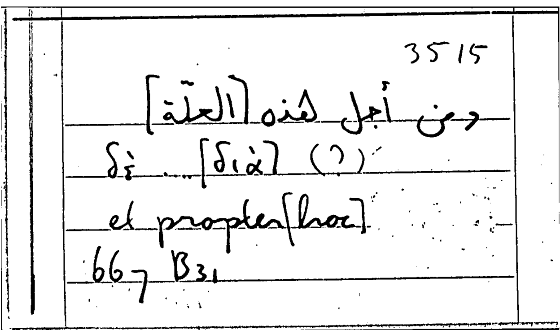 3515
ومن أجل هذه [العلّة]
δὲ ... [διὰ] (?)
et propter [hoc]
667 B31